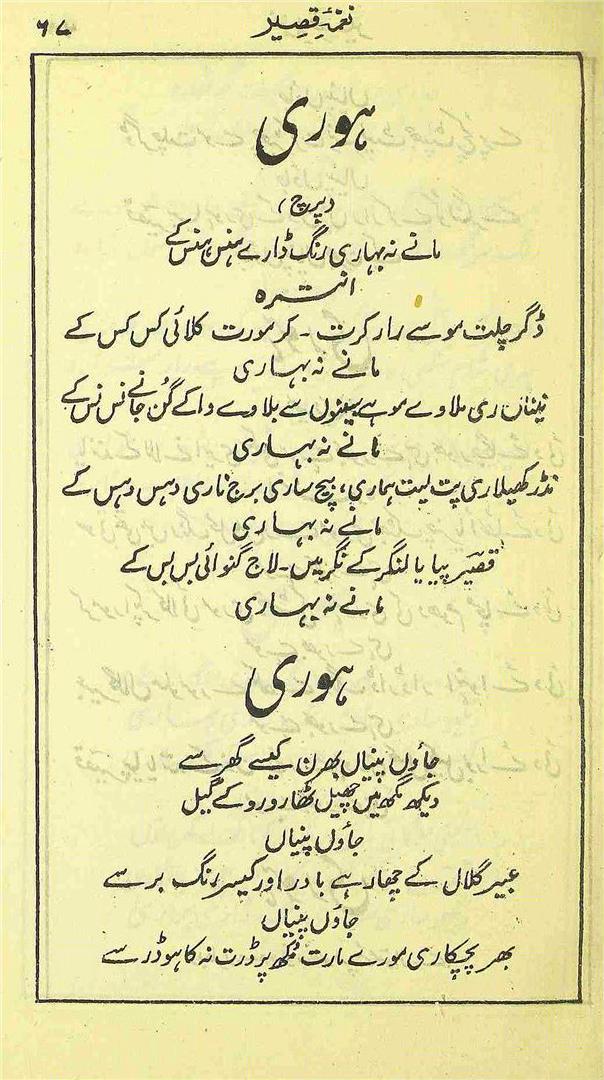 نغمۂ قصیر
۶۷
ہوری
(پرچ)
مانے نہ بہاری رنگ ڈارے ہنس ہنس کے
انترہ
ڈگر چلت موسے رار کرت ۔ کر مورت کلائی کس کس کے
مانے نہ بہاری
نیناں ری ملاوے موہے سینوں سے بلاوے واکے گن جانے نس نس کے
مانے نہ بہاری
نڈر کھیلاری پت لیت ہماری، بیچ ساری برج ناری دہس دہس کے
مانے نہ بہاری
قصیر پیا یا لنگر کے نگر میں ۔ لاج گنوائی بس بس کے
مانے نہ بہاری
ہوری
جاؤں پنیاں بھرن کیسے گھر سے
دیکھ مگھ میں چھیل ٹھارو روکے گیل
جاؤں پنیاں
عبیر گلال کے چھار ہے بادر اور کیسر رنگ برسے
جاؤں پنیاں
بھر پچکاری مورے مارت مکھ پر ڈرت نہ کاہو ڈر سے